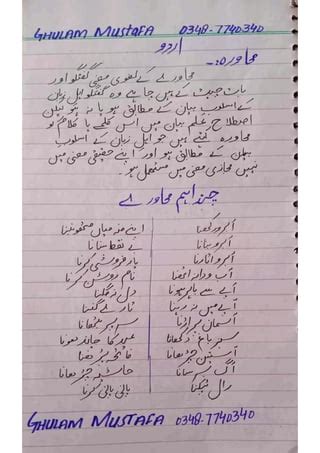 GHULAM MUSTAFA 0348-7740340
اردو
محاورہ:۔
محاورے کے لغوی معنی گفتگو اور
بات چیت کے ہیں چاہے وہ گفتگو اہل زبان
کے اسلوب بیان کے مطابق ہو یا نہ ہو لیکن
اصطلاح علم بیان میں اس کلمے یا کلام کو
محاورہ کہتے ہیں جو اہل زبان کے اسلوب
بیان کے مطابق ہو اور اپنے حقیقی معنی میں
نہیں مجازی معنی میں مستعمل ہو۔
چند اہم محاورے
آبرو رکھنا اپنے منہ میاں مٹھو بننا
بے نقط سنانا
آبرو اتارنا
نام روشن کرنا
آپے سے باہر ہونا دل نہ لگنا
آپے میں نہ رہنا تارے گننا
سبز باغ دکھانا عید کا چاند ہونا
آستین چڑھانا فاتحہ پڑھنا
حاشیہ چڑھانا
رال ٹپکنا پانی پانی کرنا
GHULAM MUSTAFA 0348-7740340